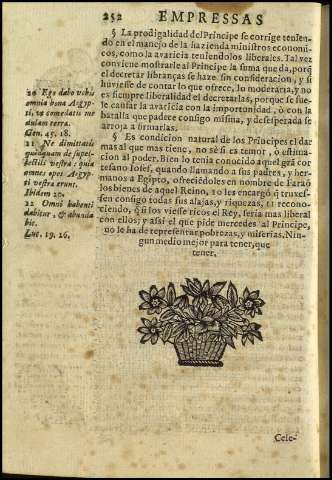 252 EMPRESSAS
§ La prodigalidad del Principe se corrige tenien-
do en el manejo de la hazienda ministros economi-
cos, como la avaricia teniendolos liberales. Tal vez
conviene mostrarle al Principe la suma que da, porq̃
el decretar libranças se haze sin consideracion, y si
huviesse de contar lo que ofrece, lo moderaria, y no
es siempre liberalidad el decretarlas, porque se sue-
le cansar la avaricia con la importunidad, ò con la
batalla que padece consigo misma, y desesperada se
arroja a firmarlas.
§ Es condicion natural de los Principes el dar
mas al que mas tiene, no sè si es temor, ò estima-
cion al poder. Bien lo tenia conocido aquel grã cor-
tesano Iosef, quando llamando a sus padres, y her-
manos a Egipto, ofreciẽdoles en nombre de Faraò
los bienes de aquel Reino, 20 les encargò q̃ truxes-
sen consigo todas sus alajas, y riquezas, 21 recono-
ciendo, q̃ si los viesse ricos el Rey, seria mas liberal
con ellos; y assi el que pide mercedes al Principe,
no le ha de representar pobrezas, y miserias. Nin-
gun medio mejor para tener, que
tener.
20 Ego dabo vobis
omnia bona Ægyp-
ti, vt comedatis me
dullam terra.
Gen. 45. 18.
21 Ne dimittatis
quidquam de supel-
lectili vestra: quia
omnes opes Ægyp-
ti vestra erunt.
Ibidem 20.
22 Omni habenti
dabitur, & abunda
bit.
Luc. 19. 26.
Cele-